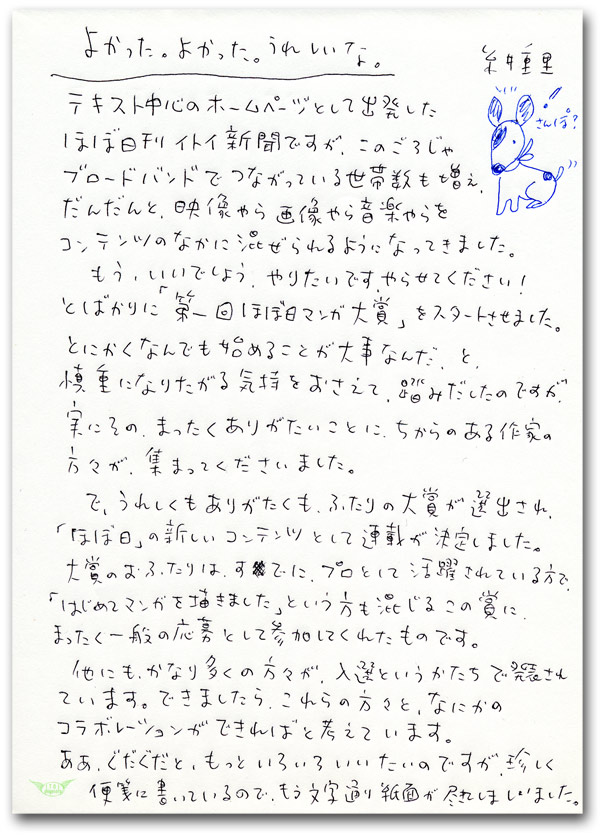 よかった。よかった。うれしいな。
糸井重里
さんぽ?
テキスト中心のホームページとして出発した
ほぼ日刊イトイ新聞ですが、このごろじゃ
ブロードバンドでつながっている世帯数も増え、
だんだんと、映像やら画像やら音楽やらを
コンテンツのなかに混ぜられるようになってきました。
もう、いいでしょう、やりたいです、やらせてください!
とばかりに「第一回ほぼ日マンガ大賞」をスタートさせました。
とにかくなんでも始めることが大事なんだ、と、
慎重になりたがる気持をおさえて、踏みだしたのですが、
実にその、まったくありがたいことに、ちからのある作家の
方々が、集まってくださいました。
で、うれしくもありがたくも、ふたりの大賞が選出され、
「ほぼ日」の新しいコンテンツとして連載が決定しました。
大賞のおふたりは、すでに、プロとして活躍されている方で、
「はじめてマンガを描きました」という方も混じるこの賞に、
まったく一般の応募として参加してくれたものです。
他にも、かなり多くの方々が、入選というかたちで発表され
ています。できましたら、これらの方々と、なにかの
コラボレーションができればと考えています。
ああ、ぐだぐだと、もっといろいろいいたいのですが、珍しく
便箋に書いているので、もう文字通り紙面が尽きてしまいました。